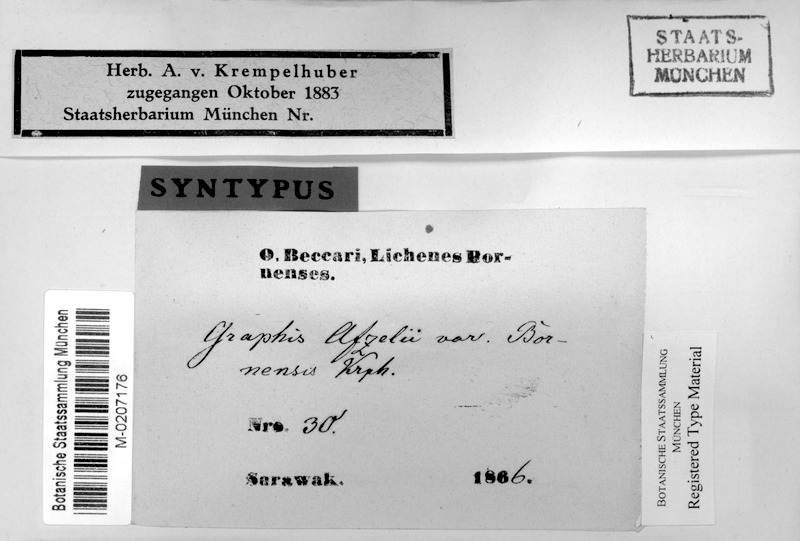 Herb. A. v. Krempelhuber
zugegangen Oktober 1883
Staatsherbarium München Nr.
STAATS-
HERBARIUM
MÜNCHEN
SYNTYPUS
O. Beccari, Lichenes Bor-
nenses.
Graphis Afzelii var. Bor-
nensis Krph.
Nro. 30.
Sarawak. 1866.
Botanische Staatssammlung München
M-0207176
BOTANISCHE STAATSSAMMLUNG
MÜNCHEN
Registered Type Material